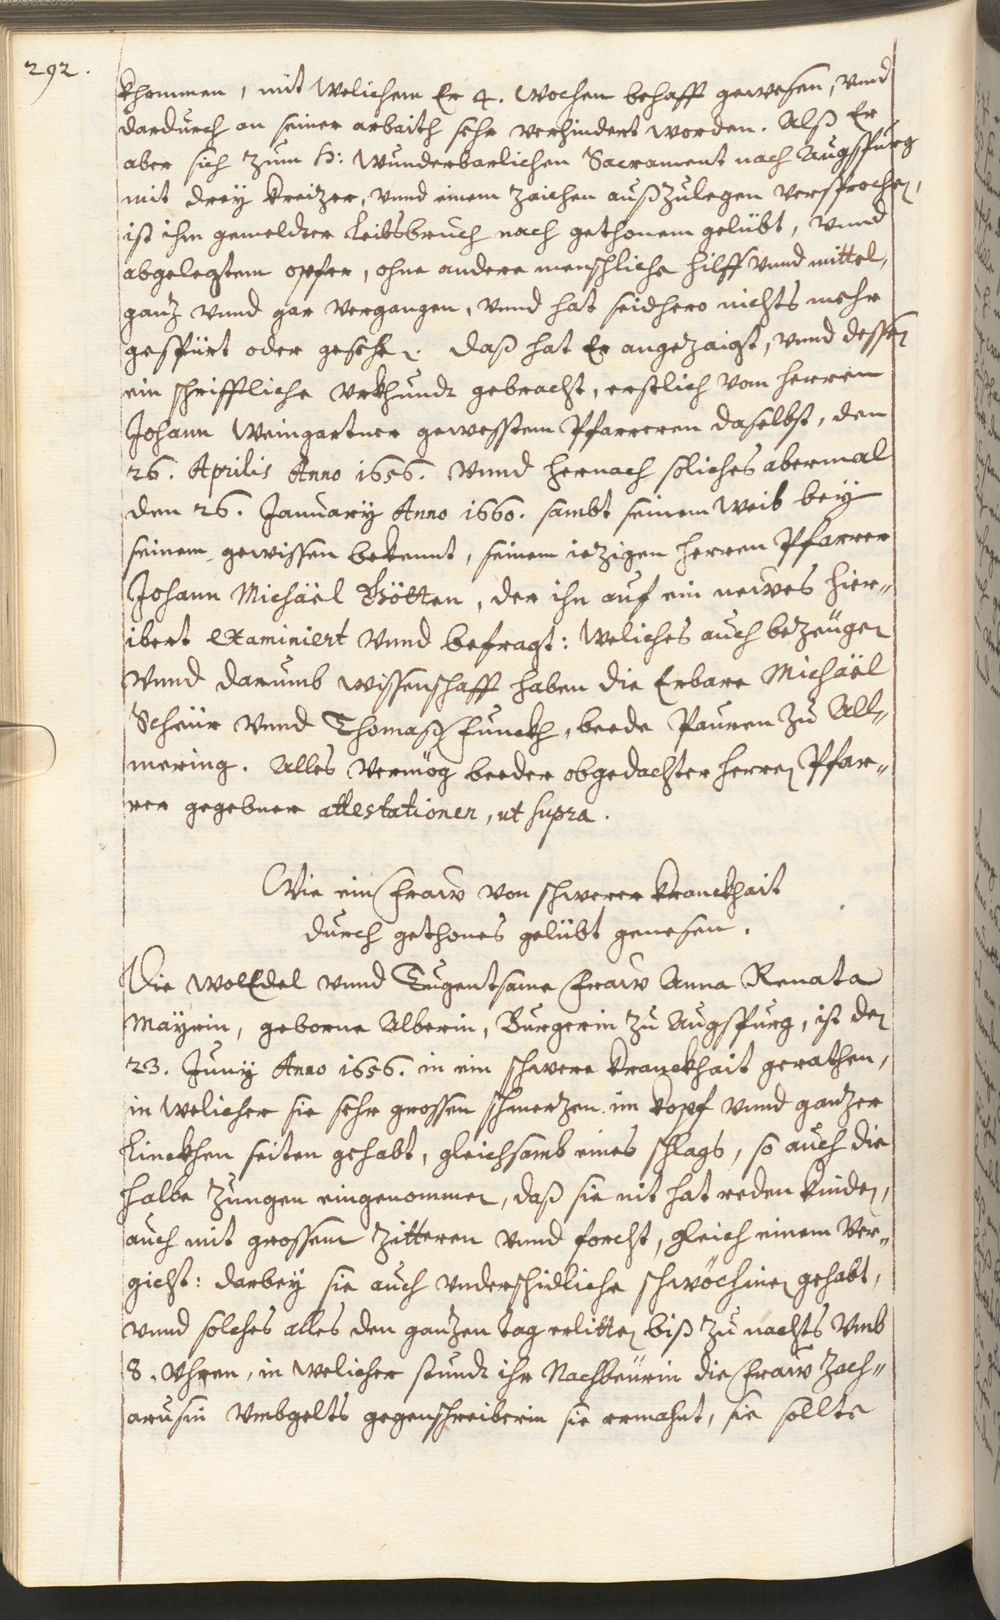 292.
khommen, mit Welichem Er 4. Wochen behafft gewesen, vnnd
dardurch an seiner arbaith sehr verhindert worden. Alß Er
aber sich zum H: Wunderbarlichen Sacrament nach Augspurg
mit drey Kreitzer, vnnd einem zaichen außzulegen versprochen,
ist ihm gemeldter Leibsbruch nach gethonem gelübt, vnnd
abgelegtem opfer, ohne andere menschliche hilff vnnd mittel,
gantz vnnd gar vergangen, vnnd hat seidhero nichts mehr
gespürt oder gesehen. Daß hat Er angezaigt, vnnd dessen
ein schrifftliche Vrkhundt gebracht, erstlich vom herren
Johann Weingartner gewesstem Pfarreren daselbst, den
26. Aprilis Anno 1656. Vnnd hernach soliches abermal
den 26. January Anno 1660. sambt seinem Weib bey
seinem gewissen bekennt, seinem ietzigen herren Pfarrer
Johann Michäel Götten, der ihn auf ein newes hier-
ibert examiniert vnnd befragt: Weliches auch bezeügen
vnnd darumb wissenschafft haben die Erbare Michäel
Scheür vnnd Thomaß Funckh, beede Pauren zu All-
mering. Alles vermög beeder obgedachter herren Pfar-
rer gegebner attestationen, ut supra.
Wie ein Fraw von schwerer Kranckhait
durch gethones gelübt genesen.
Die WolEdel vnnd Tugentsame Fraw Anna Renata
Mayrin, geborne Alberin, Burgerin zu Augspurg, ist den
23. Juny Anno 1656. in ein schwere Kranckhait gerathen,
in Welicher sie sehr grossen schmertzen im Kopf vnnd gantzer
Linckhen seiten gehabt, gleichsamb eines schlags, so auch die
halbe Zungen eingenommen, daß sie nit hat reden kinden,
auch mit grossem Zitteren vnnd forcht, gleich einem Ver-
gicht: darbey sie auch vnderschidliche schwöchinen gehabt,
vnnd solches alles den gantzen tag erlitten biß zu nachts vmb
8. Uhren, in Welicher stundt ihr Nachbeürin die Fraw Zach-
arusin Vmbgelts gegenschreiberin sie ermahnt, sie sollte